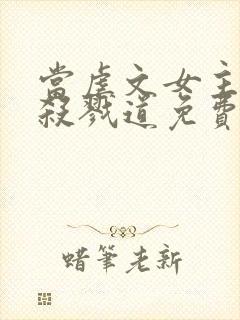 當虐文女主
殺戮道免費
蜡筆老新